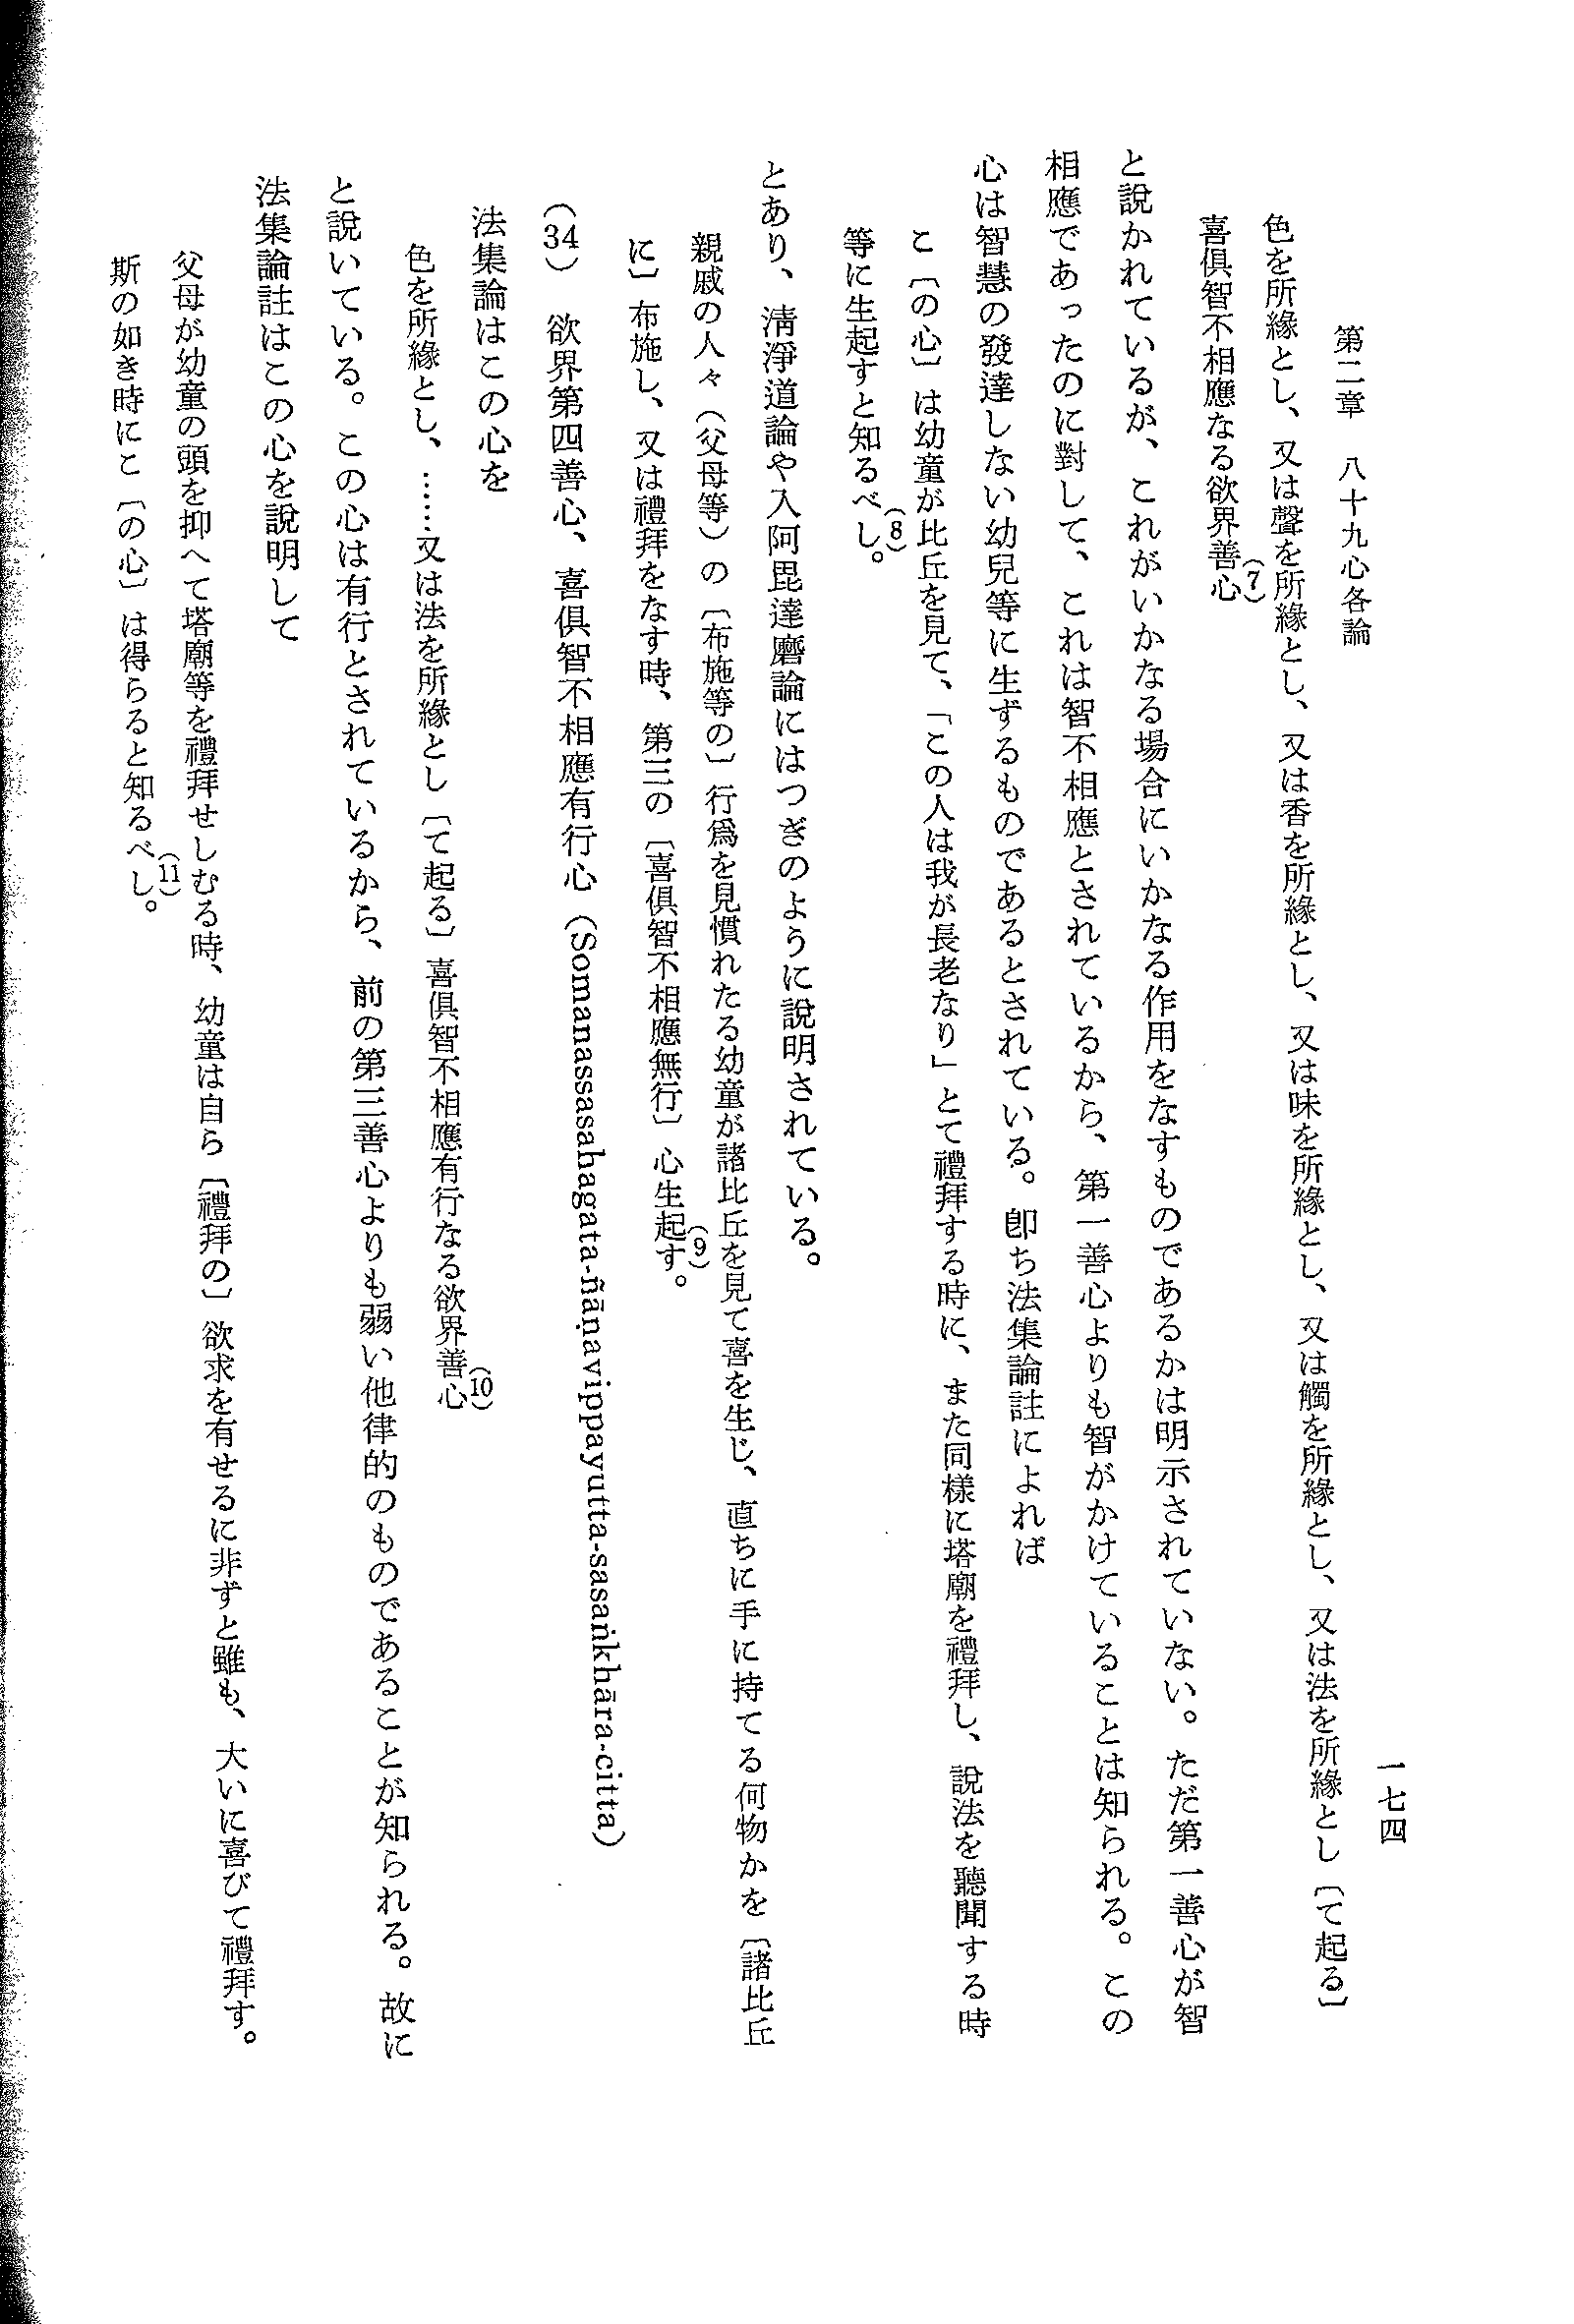 第二章　八十九心各論
一七四
色を所緣とし、又は聲を所緣とし、又は香を所緣とし、又は味を所緣とし、又は觸を所緣とし、又は法を所緣とし〔て起る〕
喜俱智不相應なる欲界善心(7)
と說かれているが、これがいかなる場合にいかなる作用をなすものであるかは明示されていない。ただ第一善心が智
相應であったのに對して、これは智不相應とされているから、第一善心よりも智がかけていることは知られる。この
心は智慧の發達しない幼兒等に生ずるものであるとされている。卽ち法集論註によれば
こ〔の心〕は幼童が比丘を見て、「この人は我が長老なり」とて禮拜する時に、また同樣に塔廟を禮拜し、說法を聽聞する時
等に生起すと知るべし。(8)
とあり、淸淨道論や入阿毘達磨論にはつぎのように說明されている。
親戚の人々（父母等）の〔布施等の〕行爲を見慣れたる幼童が諸比丘を見て喜を生じ、直ちに手に持てる何物かを〔諸比丘
に〕布施し、又は禮拜をなす時、第三の〔喜俱智不相應無行〕心生起す。(9)
（34）　欲界第四善心、喜俱智不相應有行心（Somanassasahagata-ñāṇavippayutta-sasaṅkhāra-citta）
法集論はこの心を
色を所緣とし、……又は法を所緣とし〔て起る〕喜俱智不相應有行なる欲界善心(10)
と說いている。この心は有行とされているから、前の第三善心よりも弱い他律的のものであることが知られる。故に
法集論註はこの心を說明して
父母が幼童の頭を抑へて塔廟等を禮拜せしむる時、幼童は自ら〔禮拜の〕欲求を有せるに非ずと雖も、大いに喜びて禮拜す。
斯の如き時にこ〔の心〕は得らると知るべし。(11)